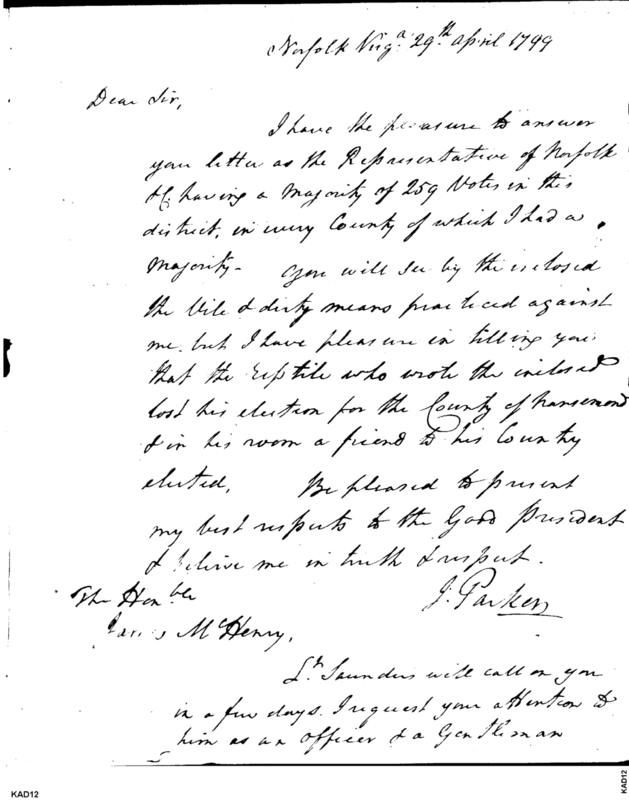 Norfolk Virga. 29th. April 1799
Dear Sir,
I have the pleasure to answer
your letter as the Representative of Norfolk
&C, having a Majority of 259 Votes in this
district, in every County of which I had a
Majority- You will see by the inclosed
the Vile & dirty means practiced against
me. but I have pleasure in telling you
that the reptile who wrote the inclosed
lost his election for the County of Nansemond
& in his room a friend to his Country
elected. Be pleased to present
my best respects to the Good President
& believe me in truth & respect.
The Honble J. Parker
James McHenry,
Lt. Saunders will call on you
in a few days. I request your attention to
him as an officer & a Gentleman
KAD12
KAD12